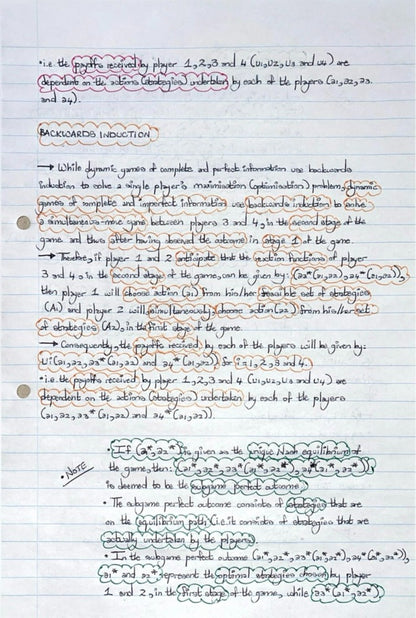 • i.e. the payoffs received by player 1, 2, 3 and 4 (u1, u2, u3 and u4) are
dependent on the actions (strategies) undertaken by each of the players (a1, a2, a3
and a4).
BACKWARDS INDUCTION
→ While dynamic games of complete and perfect information use backwards
induction to solve a single player's maximisation (optimisation) problem, dynamic
games of complete and imperfect information use backwards induction to solve
a simultaneous-move game between players 3 and 4, in the second stage of the
game and thus after having observed the outcome in stage 1 of the game.
→ Therefore, if player 1 and 2 anticipate that the reaction functions of player
3 and 4, in the second stage of the game, can be given by: (a3*(a1, a2), a4*(a1, a2)),
then player 1 will choose action (a1) from his/her feasible set of strategies
(A1) and player 2 will simultaneously choose action (a2) from his/her set
of strategies (A2), in the first stage of the game.
→ Consequently, the payoffs received by each of the players will be given by:
Ui(a1, a2, a3*(a1, a2) and a4*(a1, a2)) for i = 1, 2, 3 and 4.
• i.e. the payoffs received by player 1, 2, 3 and 4 (u1, u2, u3 and u4) are
dependent on the actions (strategies) undertaken by each of the players
(a1, a2, a3*(a1, a2) and a4*(a1, a2)).
• NOTE
• If (a1*, a2*) is given as the unique Nash equilibrium of
the game, then: (a1*, a2*, a3*(a1*, a2*), a4*(a1*, a2*))
is deemed to be the subgame perfect outcome.
• The subgame perfect outcome consists of strategies that are
on the equilibrium path (i.e. it consists of strategies that are
actually undertaken by the players).
• In the subgame perfect outcome (a1*, a2*, a3*(a1*, a2*), a4*(a1*, a2*)),
a1* and a2* represent the optimal strategies chosen by player
1 and 2, in the first stage of the game, while a3*(a1*, a2*),